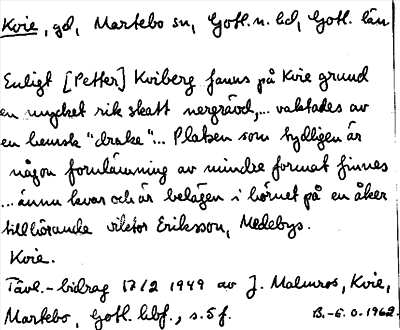 Kvie, gd, Martebo sn, Gotl. n. hd, Gotl. län
Enligt [Petter] Kviberg fanns på Kvie grund
en mycket rik skatt nergrävd,... vaktades av
en hemsk "drake"... Platsen som tydligen är
någon fornlämning av mindre format finnes
...ännu kvar och är belägen i hörnet på en åker
tillhörande viktor Eriksson, Medebys.
Kvie.
Tävl.-bidrag 17/2 1949 av J. Malmros, Kvie,
Martebo, Gotl. bibl., s. 5 f. B.-E. O. 1962.